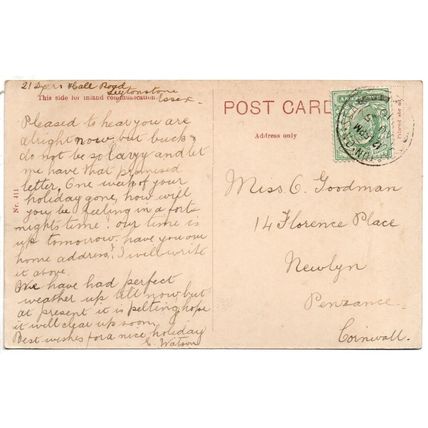 21 Dyers Hall Road
Leytonstone
Essex.
This side for inland communication.
Pleased to hear you are
alright now, but buck up
do not be so larzy and let
me have that promised
letter. One week of your
holiday gone, how will
you be feeling in a fort-
nights time! our time is
up tomorrow. have you our
home address? I will write
it above.
We have had perfect
weather up till now but
at present it is pelting hope
it will clear up soon.
Best wishes for a nice holiday
E. Watson
No. 411
POST CARD
Address only
Miss C. Goodman
14 Florence Place
Newlyn
Penzance.
Cornwall.